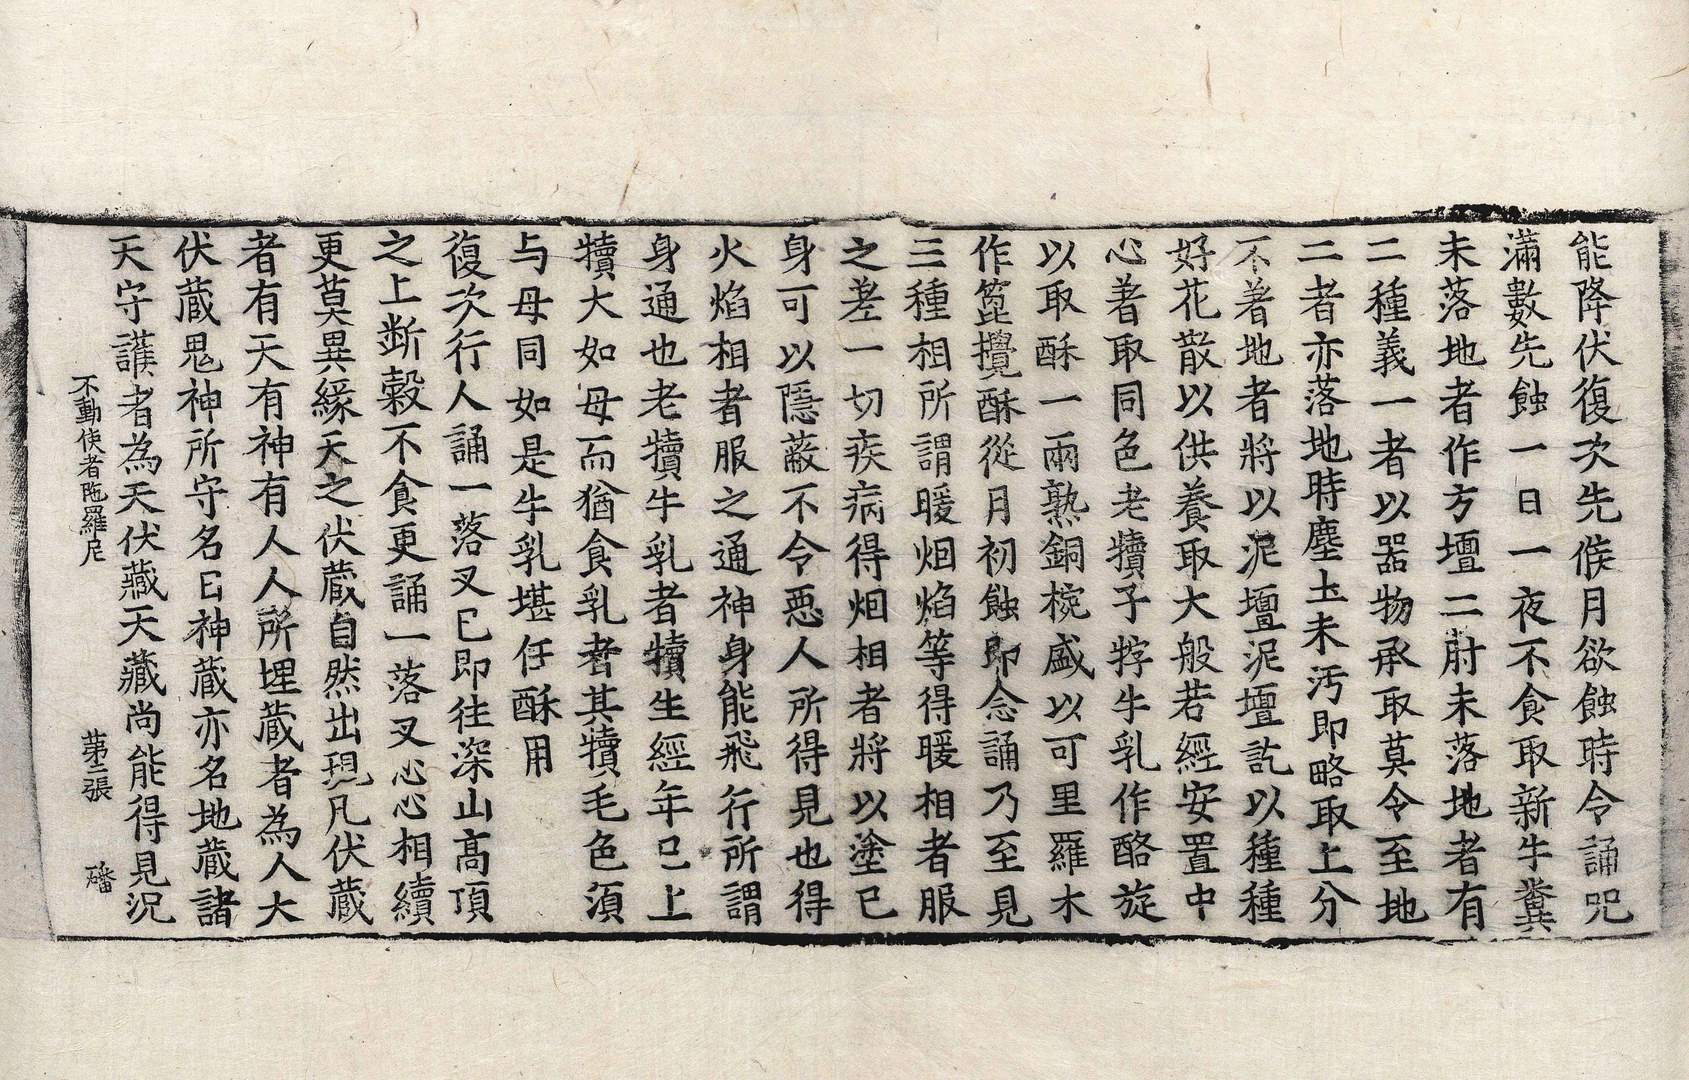 能降伏復次先候月欲蝕時令誦呪
滿數先蝕一日一夜不食取新牛糞
未落地者作方壇二肘未落地者有
二種義一者以器物承取莫令至地
二者亦落地時塵土未汚即略取上分
不著地者將以泥壇泥壇訖以種種
好花散以供養取大般若經安置中
心著取同色老犢子牸牛乳作酪旋
以取酥一兩熟銅椀盛以可里羅木
作箆攪酥從月初蝕即念誦乃至見
三種相所謂暖烟焰等得暖相者服
之差一切疾病得烟相者將以塗已
身可以隱蔽不令惡人所得見也得
火焰相者服之通神身能飛行所謂
身通也老犢牛乳者犢生經年已上
犢大如母而猶食乳者其犢毛色須
与母同如是牛乳堪任酥用
復次行人誦一落叉已即往深山高頂
之上断穀不食更誦一落叉心心相續
更莫異緣天之伏蔵自然出現凡伏蔵
者有天有神有人人所埋蔵者為人大
伏蔵鬼神所守名曰神蔵亦名地蔵諸
天守護者為天伏藏天藏尚能得見況
不動使者陁羅尼 第二張 磻